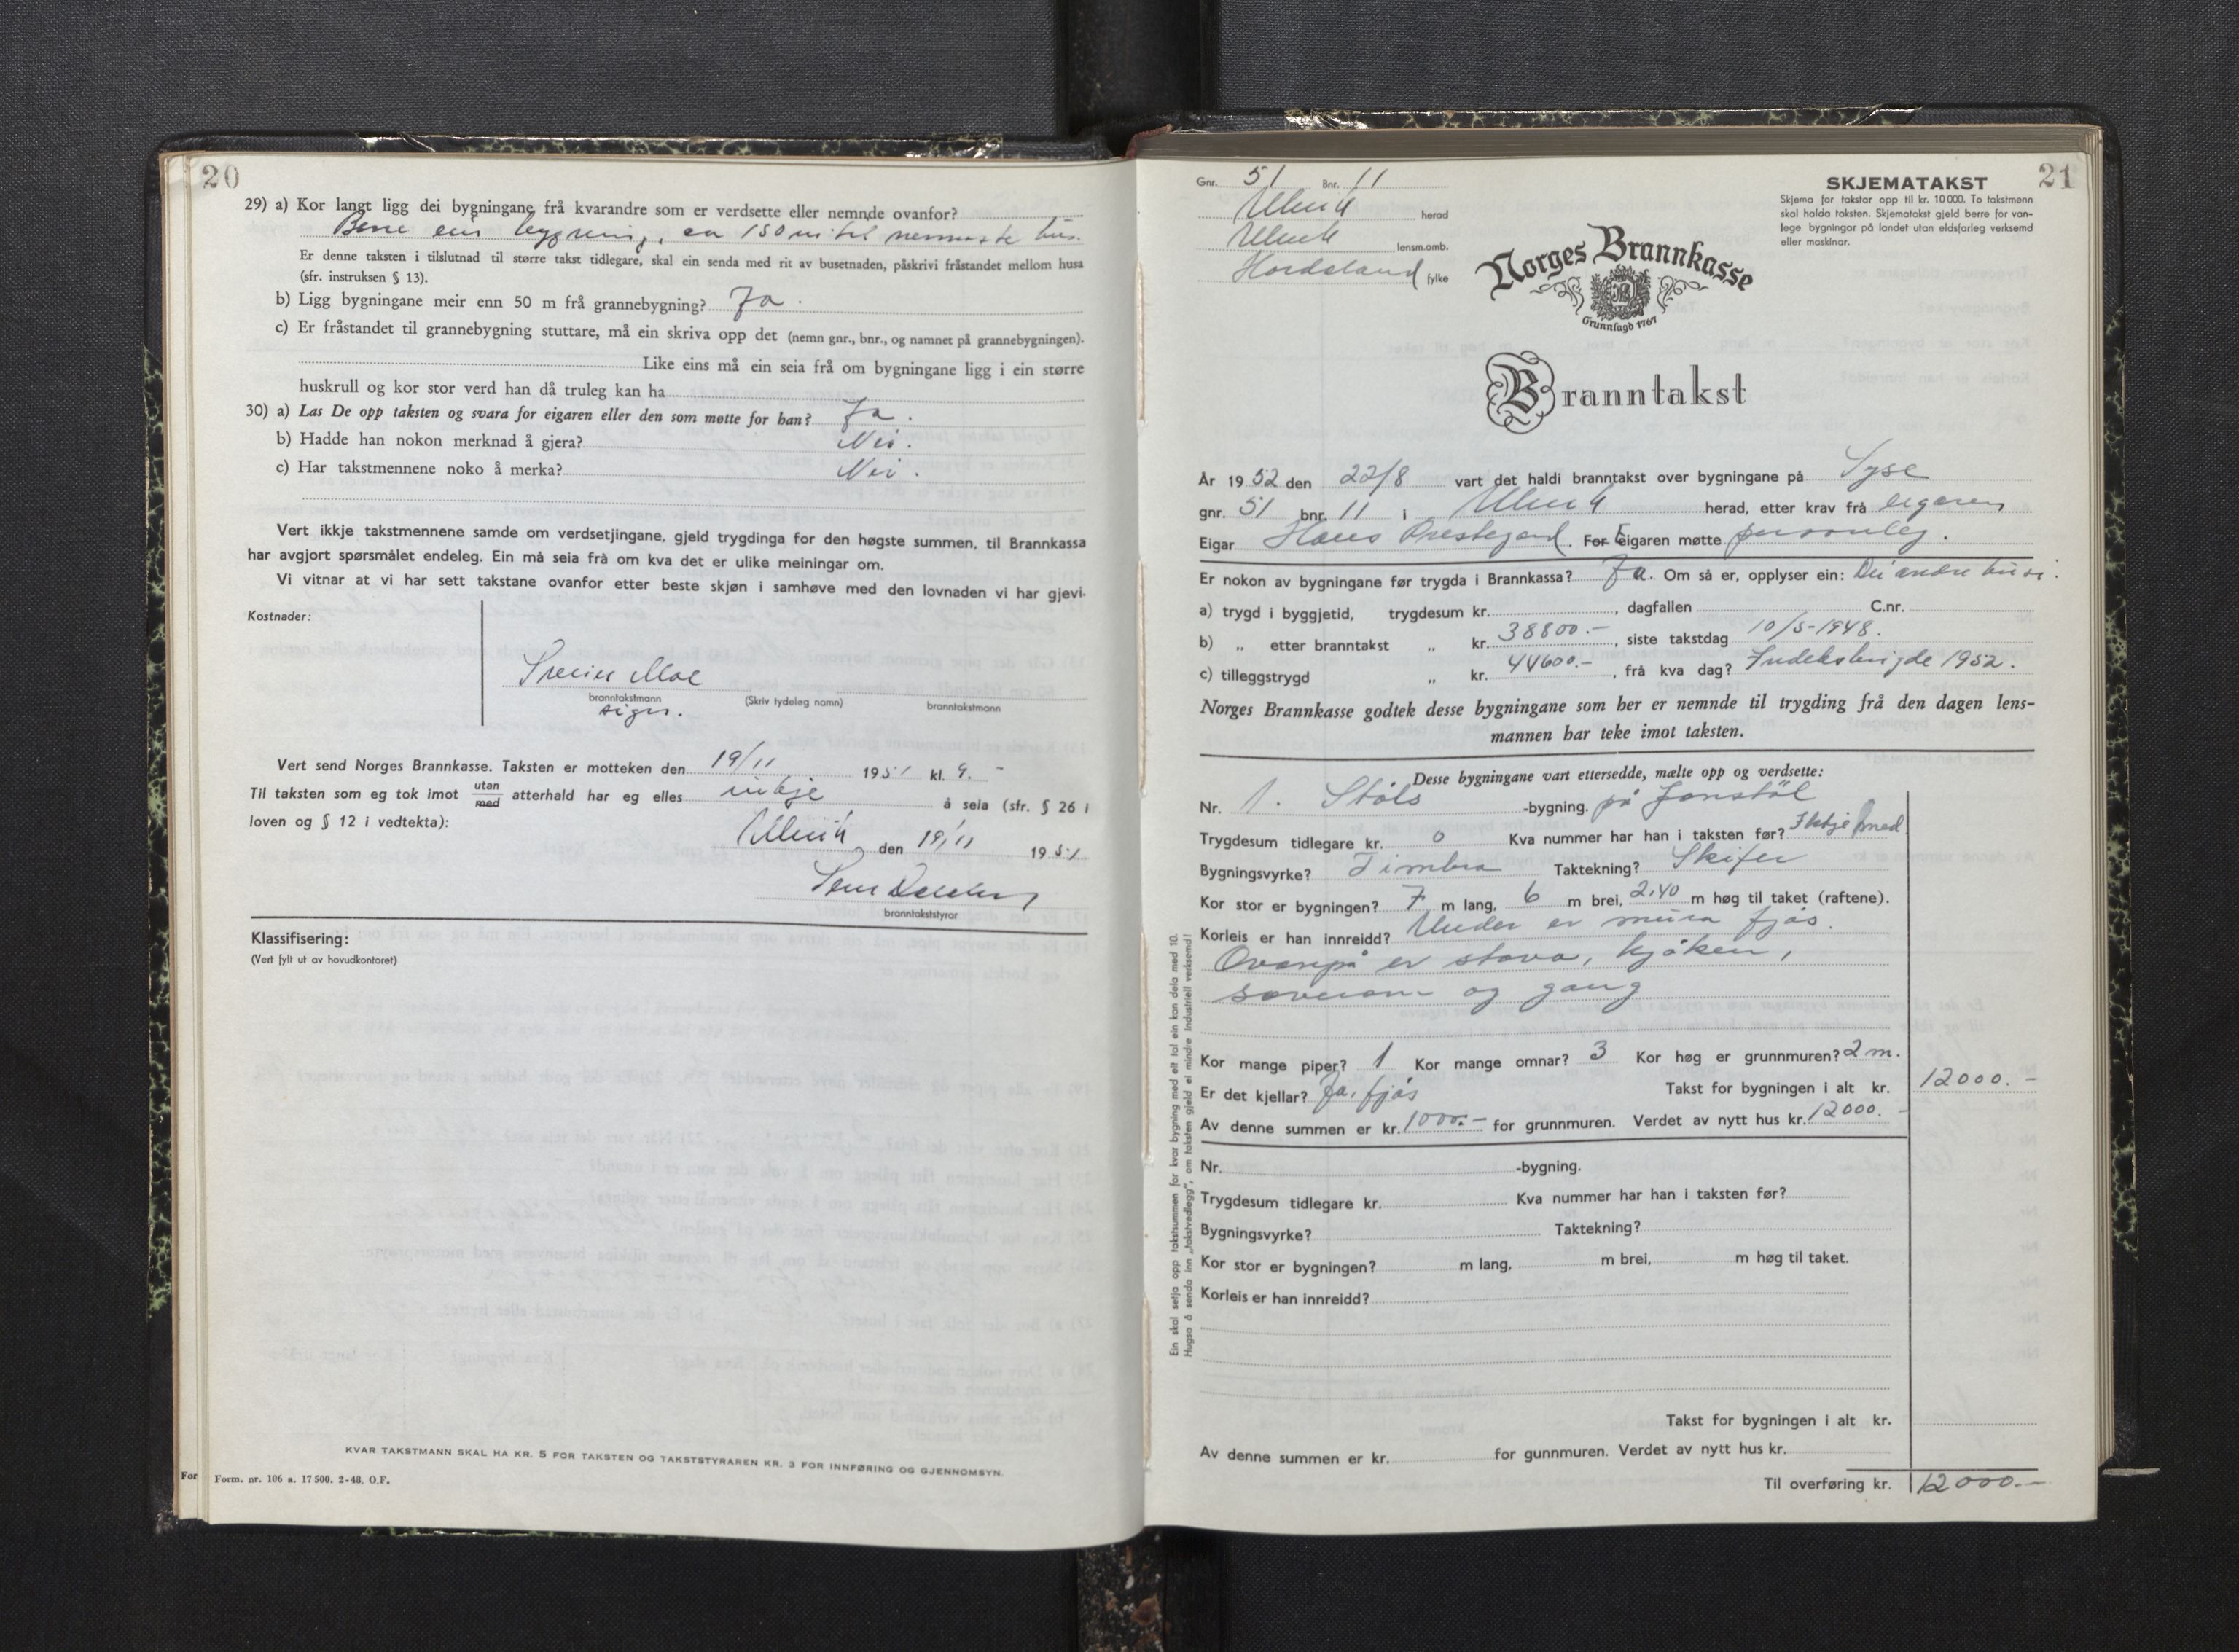 20
29) a) Kor langt ligg dei bygningane frå kvarandre som er verdsette eller nemnde ovanfor?
Berre ein bygning, ca 150 m til nermaste hus.
Er denne taksten i tilslutnad til større takst tidlegare, skal ein senda med rit av busetnaden, påskrivi fråstandet mellom husa
(sfr. instruksen § 13).
b) Ligg bygningane meir enn 50 m frå grannebygning? Ja.
c) Er fråstandet til grannebygning stuttare, må ein skriva opp det (nemn gnr., bnr., og namnet på grannebygningen).
Like eins må ein seia frå om bygningane ligg i ein større
huskrull og kor stor verd han då truleg kan ha
30) a) Las De opp taksten og svara for eigaren eller den som møtte for han? Ja.
b) Hadde han nokon merknad å gjera? Nei.
c) Har takstmennene noko å merka? Nei.
Vert ikkje takstmennene samde om verdsetjingane, gjeld trygdinga for den høgste summen, til Brannkassa
har avgjort spørsmålet endeleg. Ein må seia frå om kva det er ulike meiningar om.
Vi vitnar at vi har sett takstane ovanfor etter beste skjøn i samhøve med den lovnaden vi har gjevi.
Kostnader:
Moe
branntakstmann (Skriv tydeleg namn) branntakstmann
sign.
Vert send Norges Brannkasse. Taksten er motteken den 19/11 1951 kl. 9. -
Til taksten som eg tok imot utan/med atterhald har eg elles inkje å seia (sfr. § 26 i
loven og § 12 i vedtekta):
Ullensv. den 19/11 1951
branntakststyrar
Klassifisering:
(Vert fylt ut av hovudkontoret)
KVAR TAKSTMANN SKAL HA KR. 5 FOR TAKSTEN OG TAKSTSTYRAREN KR. 3 FOR INNFØRING OG GJENNOMSYN.
For
Form. nr. 106 a. 17 500. 2-48. O.F.
21
Gnr. 51 Bnr. 11
Ullensv. herad
Ullensv. lensm.omb.
Hordaland fylke
SKJEMATAKST
Skjema for takstar opp til kr. 10 000. To takstmenn
skal halda taksten. Skjematakst gjeld berre for van-
lege bygningar på landet utan eldsfarleg verksemd
eller maskinar.
Norges Brannkasse
Grunnlagd 1767
Branntakst
År 1952 den 22/8 vart det haldi branntakst over bygningane på Syse
gnr. 51 bnr. 11 i Ullensv. herad, etter krav frå eigaren
Eigar Hans Prestegard. For Eigaren møtte personleg.
Er nokon av bygningane før trygda i Brannkassa? Ja. Om så er, opplyser ein: Dei andre husi.
a) trygd i byggjetid, trygdesum kr. , dagfallen C.nr.
b) „ etter branntakst „ kr. 38800.- , siste takstdag 10/5-1948.
c) tilleggstrygd „ kr. 44600.- , frå kva dag? Indekshøgde 1952.
Norges Brannkasse godtek desse bygningane som her er nemnde til trygding frå den dagen lens-
mannen har teke imot taksten.
Desse bygningane vart ettersedde, mælte opp og verdsette:
Nr. 1. Støls -bygning. på Jonstøl
Trygdesum tidlegare kr. 0 Kva nummer har han i taksten før? Ikkje med
Bygningsvyrke? Timbra Taktekning? Skifer
Kor stor er bygningen? 7 m lang, 6 m brei, 2.40 m høg til taket (raftene).
Korleis er han innreidd? Under er mura fjøs.
Ovanpå er stova, kjøken,
soverom og gang
Kor mange piper? 1 Kor mange omnar? 3 Kor høg er grunnmuren? 2 m.
Er det kjellar? Ja, fjøs Takst for bygningen i alt kr. 12000.-
Av denne summen er kr. 1000.- for grunnmuren. Verdet av nytt hus kr. 12000.-
Nr. -bygning.
Trygdesum tidlegare kr. Kva nummer har han i taksten før?
Bygningsvyrke? Taktekning?
Kor stor er bygningen? m lang, m brei, m høg til taket.
Korleis er han innreidd?
Takst for bygningen i alt kr.
Av denne summen er kr. for gunnmuren. Verdet av nytt hus kr.
Til overføring kr. 12000.-
Ein skal setja opp takstsummen for kvar bygning med eit tal ein kan dela med 10.
Hugsa å senda inn „takstvedlegg", om taksten gjeld ei mindre industriell verksemd!